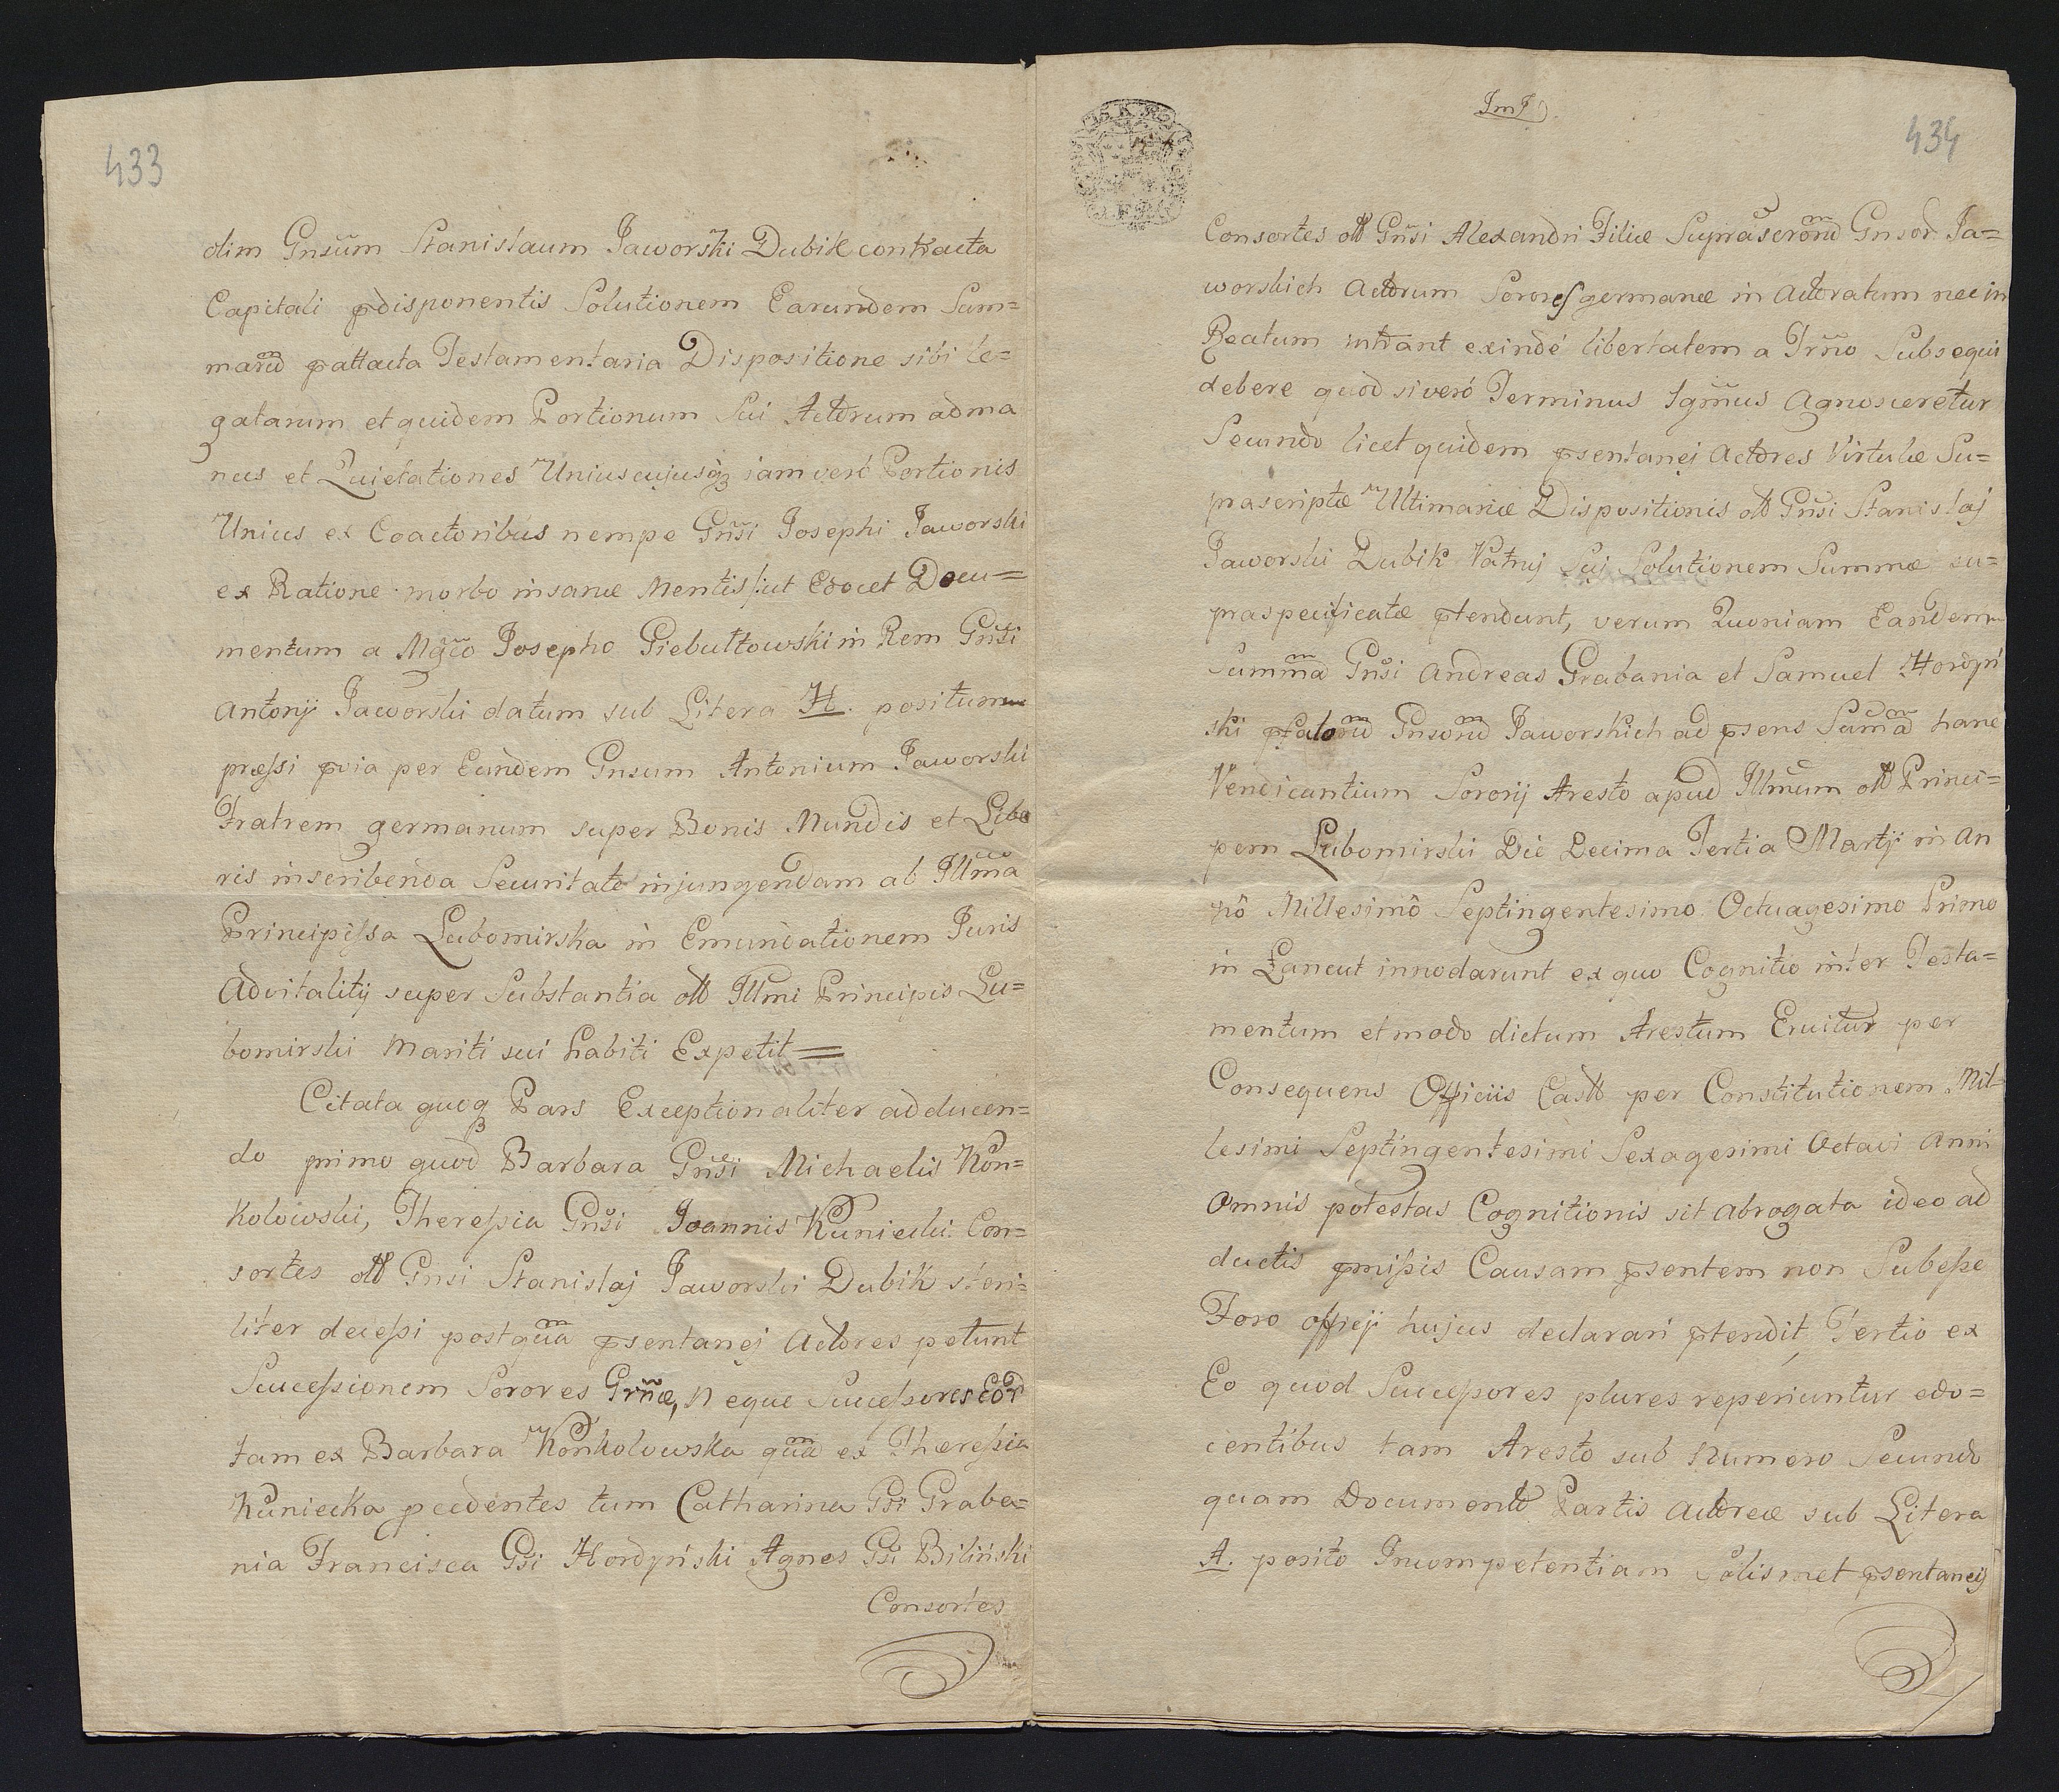 433
dim Gnsum Stanislaum Jaworski Dubik contracta
Capitali pdisponentis Solutionem Earundem Sum=
marum pattacta Testamentaria Dispositione sibi le=
gatarum et quidem Portionum Sui Actorum ad ma
nus et Quietationes Uniuscujusq3 iam veró Portionis
Unius ex Coactoribus nempe Gnsi Josephi Jaworski
ex Ratione morbo insanæ Mentis /:ut Edocet Docu=
mentum a Mgco Josepho Giebułtowski in Rem Gnsi
Antonij Jaworski datum sub Litera H. positum
præssi pvia per Eundem Gnsum Antonium Jaworski
Fratrem germanum super Bonis Mundis et Libe
ris inscribenda Securitate injungendam ab Illma
Principissa Lubomirska in Emundationem Juris
Advitalitij super Substantia olt Illmi Principis Lu=
bomirski Mariti sui habiti Expetit=
Citata quoq3 Pars Exceptionaliter adducen=
do primo quod Barbara Gnsi Michaelis Kon=
kolowski, Theressia Gnsi Joannis Kuniecki Con=
sortes olt Gnsi Stanislaj Jaworski Dubik steri=
liter decessi postqua psentanej Actores petunt
Successionem Sorores Grnæ, Neque Successores Eor
tam ex Barbara Konkolowska qua ex Theressia
Kuniecka pcedentes tum Catharina Gsi Graba=
nia Francisca Gsi Hordyński Agnes Gsi Biliński
Consortes
434
Consortes olt Gnsi Alexandri Filiæ Suprascrorum Gnsor Ja=
worskich Actorum Sorores germanæ in Actoratum nec in
Reatum intrant exindé libertatem a Trno Subsequi
debere quod si veró Terminus Igmus Agnosceretur
Secundo licet quidem psentanej Actores Virtute Su=
prascriptæ Ultimariæ Dispositionis olt Gnsi Stanislaj
Jaworski Dubik Patruj Suj Solutionem Summæ su=
praspecificatæ ptendunt, verum Quoniam Eandem
Summa Gnsi Andreas Grabania et Samuel Hordyń
ski Gnsorum Jaworskich ad psens Suma hanc
Vendicantium Sororij Aresto apud Illmum olt Princi=
pem Lubomirski Die Decima Tertia Martij in An
nô Millesimô Septingentesimo Octuagesimo Primo
in Łancut innodarunt ex quo Cognitio inter Testa=
mentum et modo dictum Arestum Eruitur per
Consequens Officiis Castt per Constitutionem Mil=
lesimi Septingentesimi Sexagesimi Octavi Anni
Omnis potestas Cognitionis sit abrogata ideo ad
ductis pmissis Causam psentem non Subesse
Foro officij hujus declarari ptendit, Tertio ex
Eo quod Successores plures reperiuntur edo=
centibus tam Aresto sub Numero Secundo
quam Documento Partis Actoreæ sub Litera
A. posito Incompetentiam solismet psentaneij